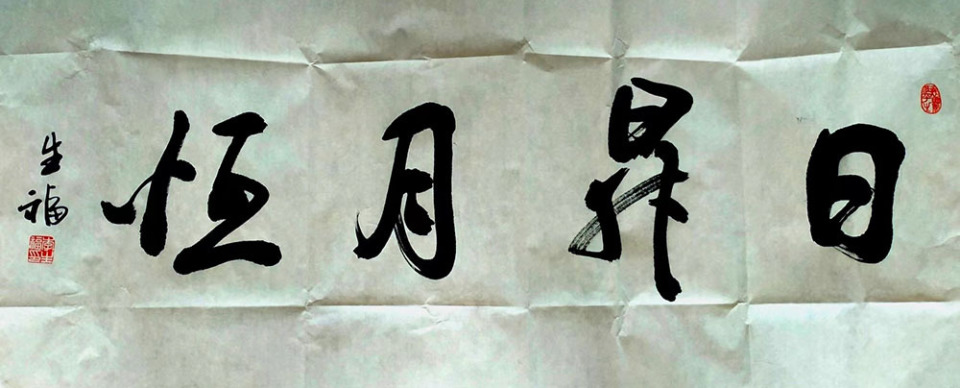 日昇月恒
生福